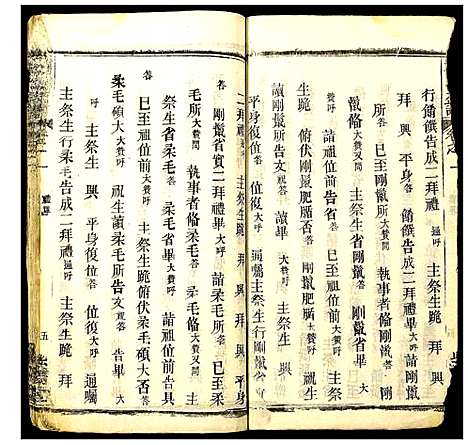 行餙饌告成二拜禮 通呼 主祭生跪 拜
拜 興 平身 答 餙饌告成二拜禮畢 大呼 詣
所 答 已至剛鬣所 大贊問 執事者偹剛鬣
鬣偹 大贊又問 剛鬣省 答 剛鬣省畢 大
告 詣祖位前 答 已至祖位前 大贊呼 主祭
生跪 俯伏剛鬣肥腯否 答 剛鬣肥腯 祝生
讀剛鬣所告文 祝答 讀畢 大贊呼 主祭生 興
平身復位 答 位復 大呼 通囑主祭生行剛鬣
二拜禮 主祭生跪 拜 興 拜 興 平身
答 剛鬣省實二拜禮畢 大贊呼 詣柔毛所 答 已至柔
毛所 大贊問 執事者偹柔毛 答 柔毛偹 大贊又問
祭生省柔毛 答 柔毛省畢 大贊呼 詣祖位前告具
答 已至祖位前 大贊呼 主祭生跪俯伏柔毛碩大否 答
柔毛碩大 大贊呼 祝生讀柔毛所告文 祝答 告畢 大
呼 主祭生 興 平身復位 答 位復 大呼 通囑
主祭生行柔毛告成二拜禮 通呼 主祭生跪 拜
禮
五